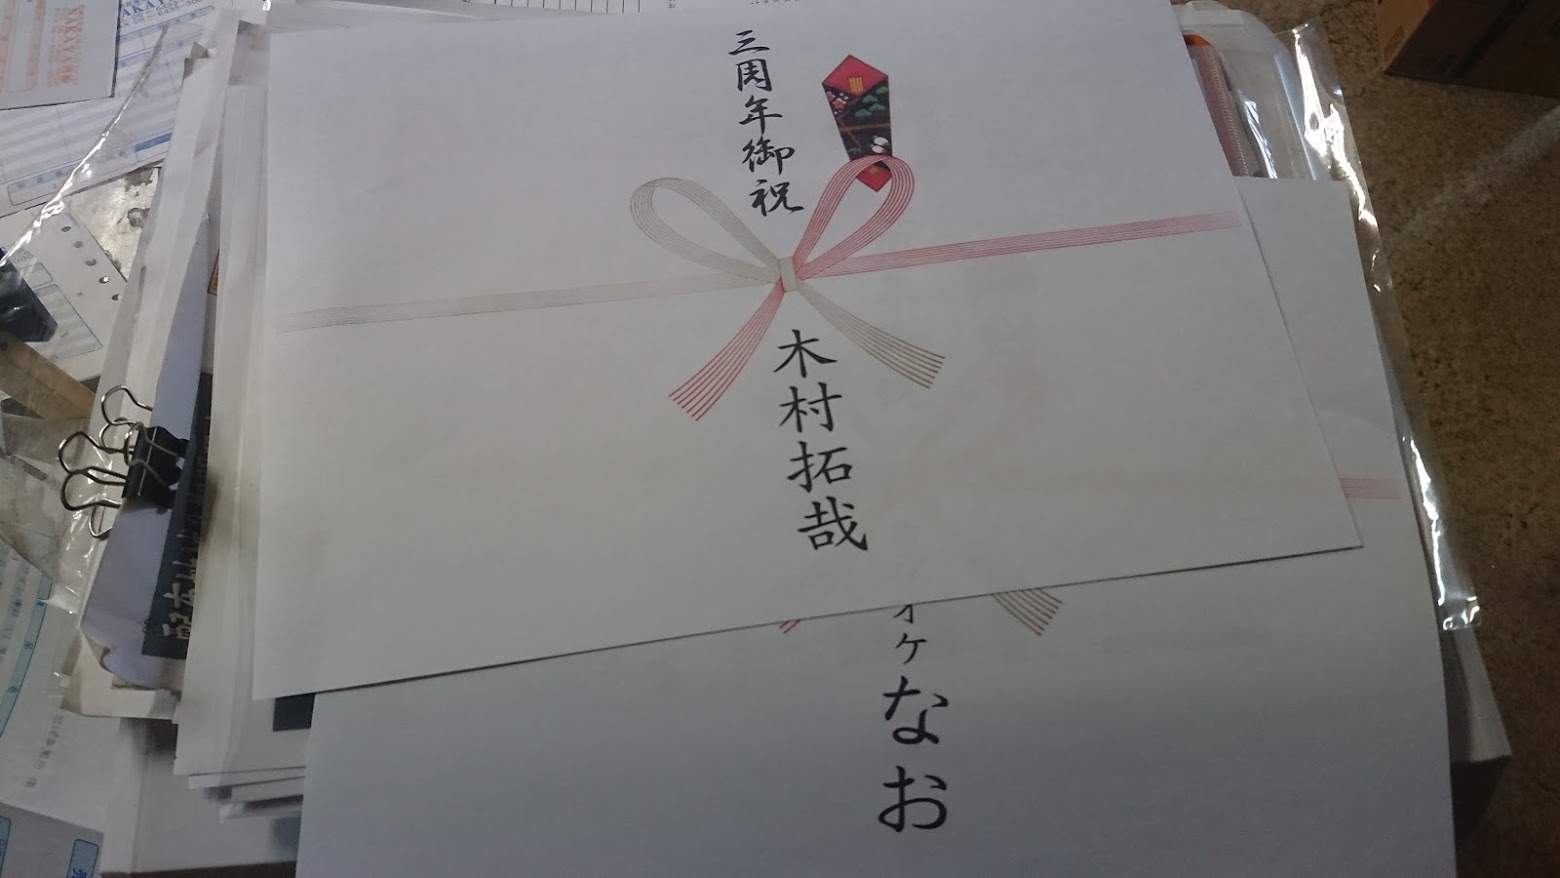 三周年御祝
木村拓哉
オケ
なお